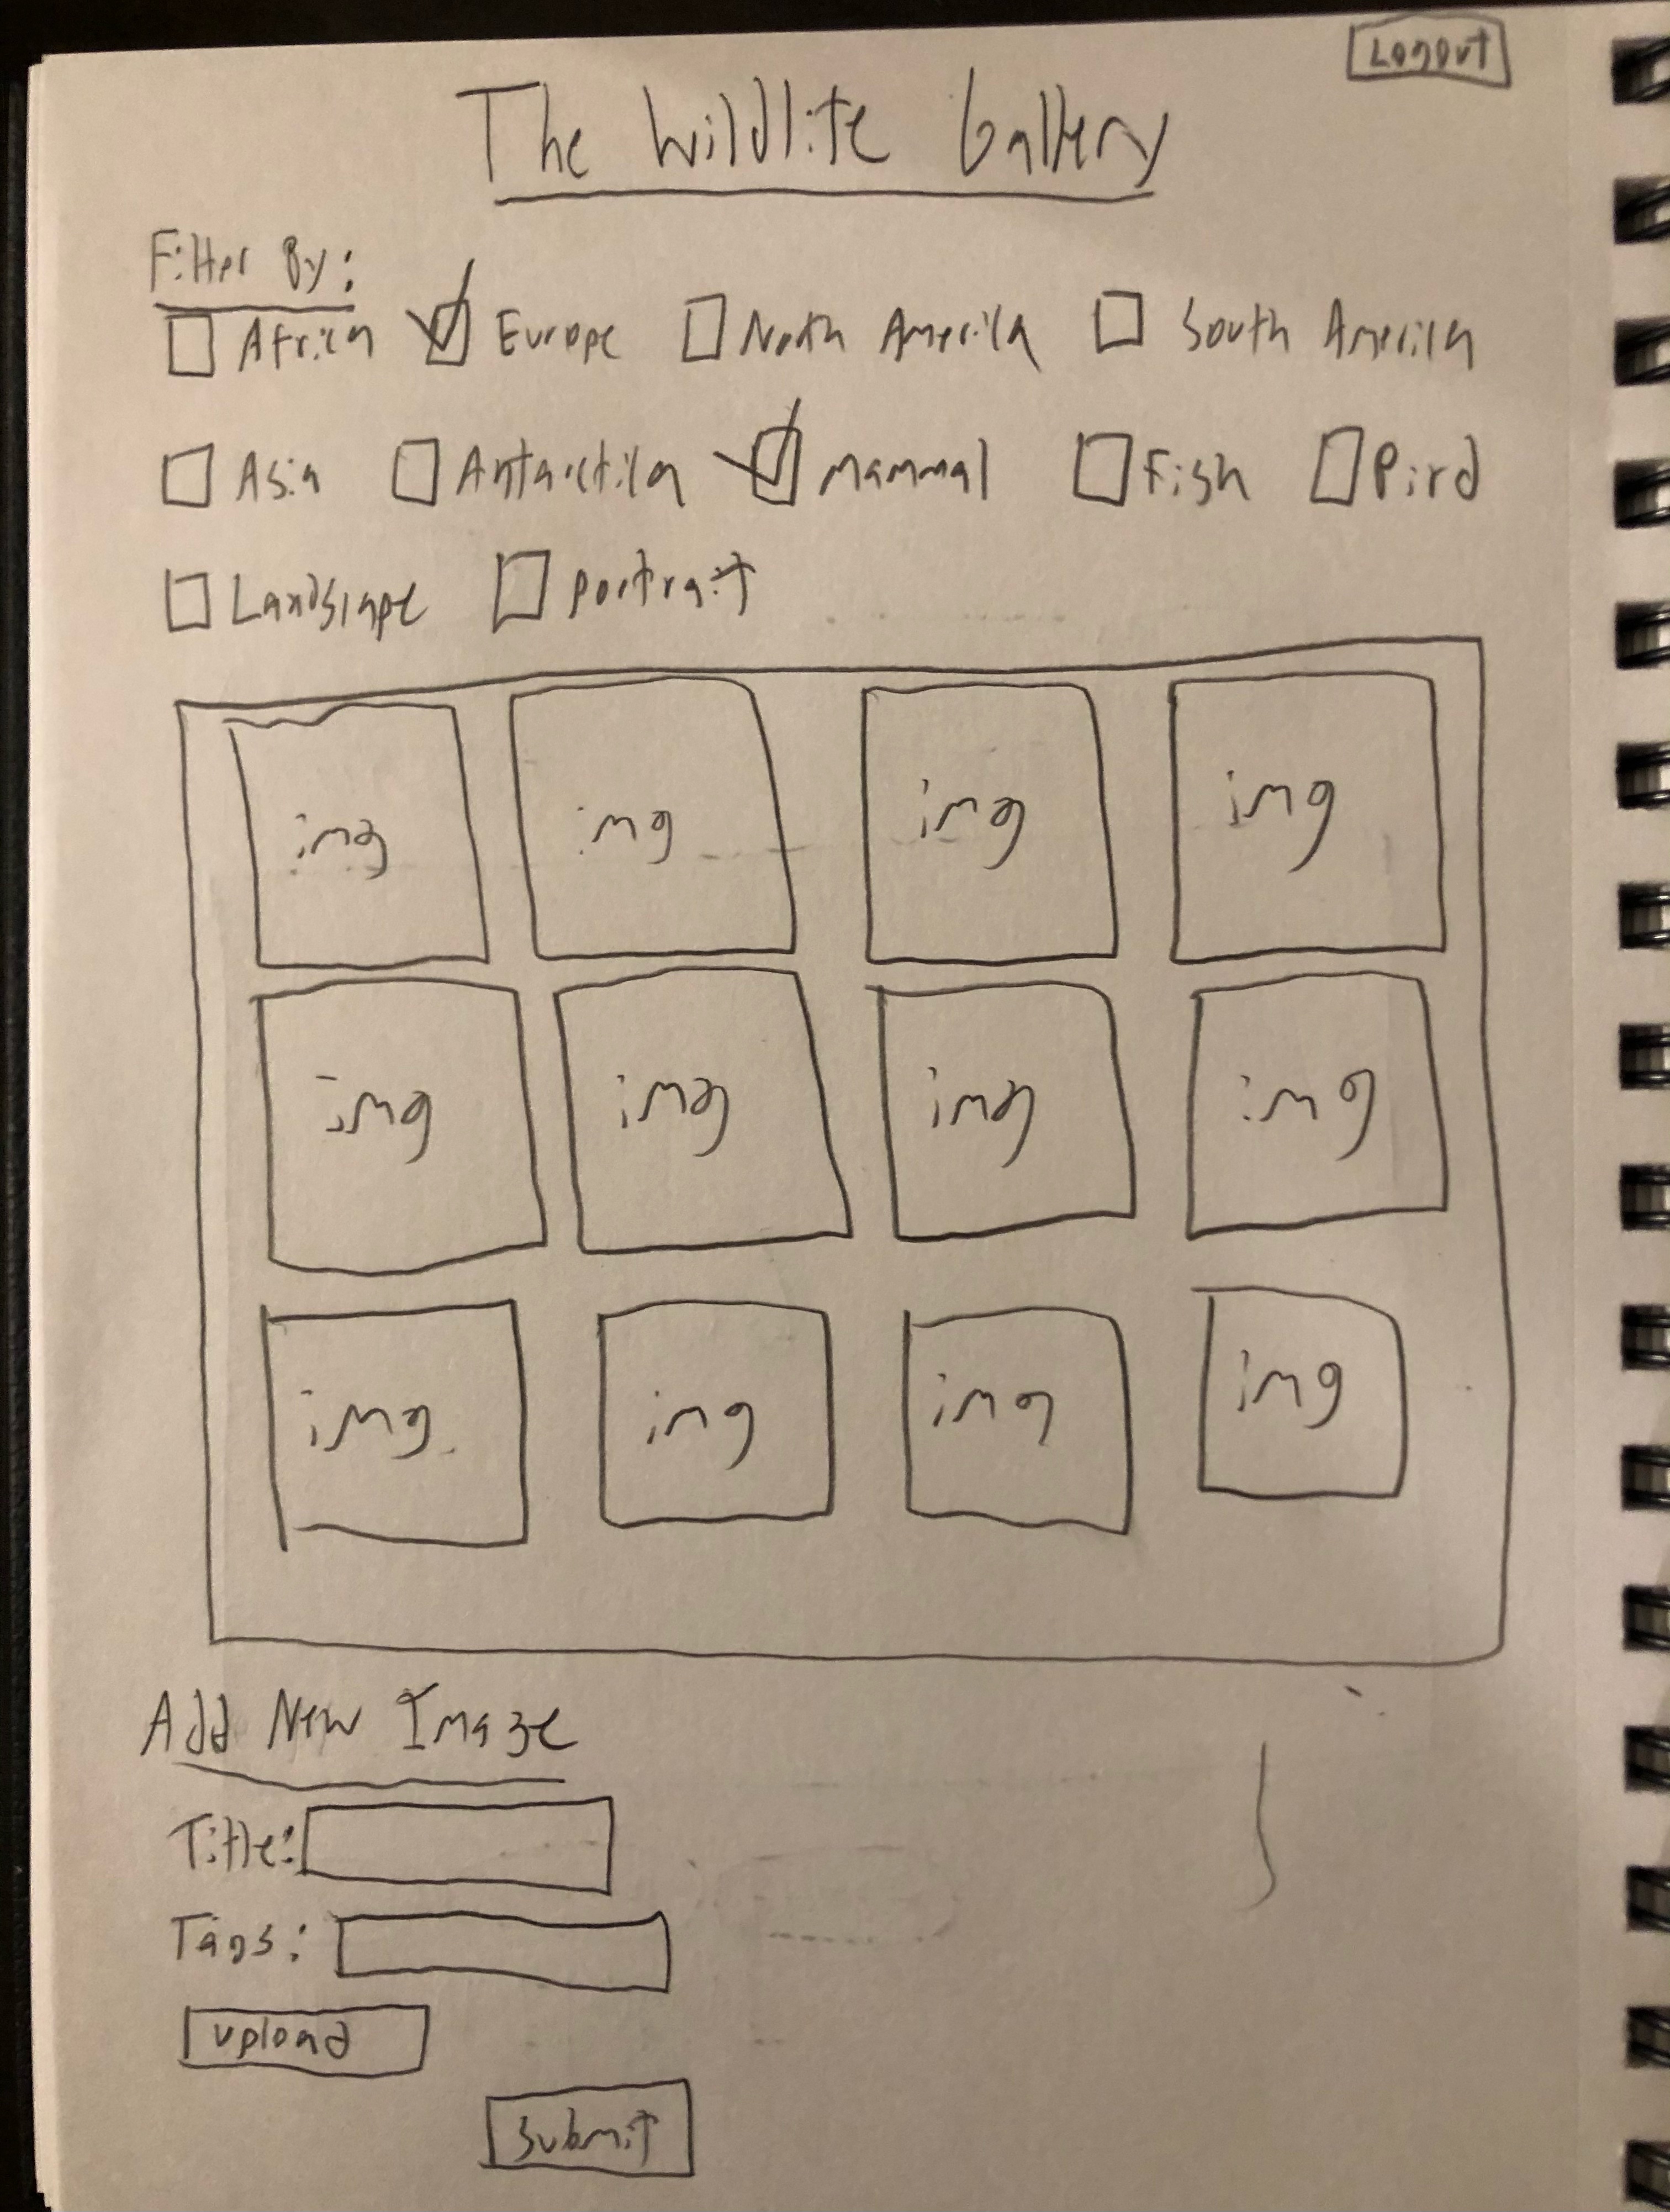 Logout
The Wildlife Gallery
Filter By:
Africa Europe North America South America
Asia Antarctica Mammal Fish Bird
Landscape Portrait
img img img img
img img img img
img img img img
Add New Image
Title:
Tags:
Upload
Submit